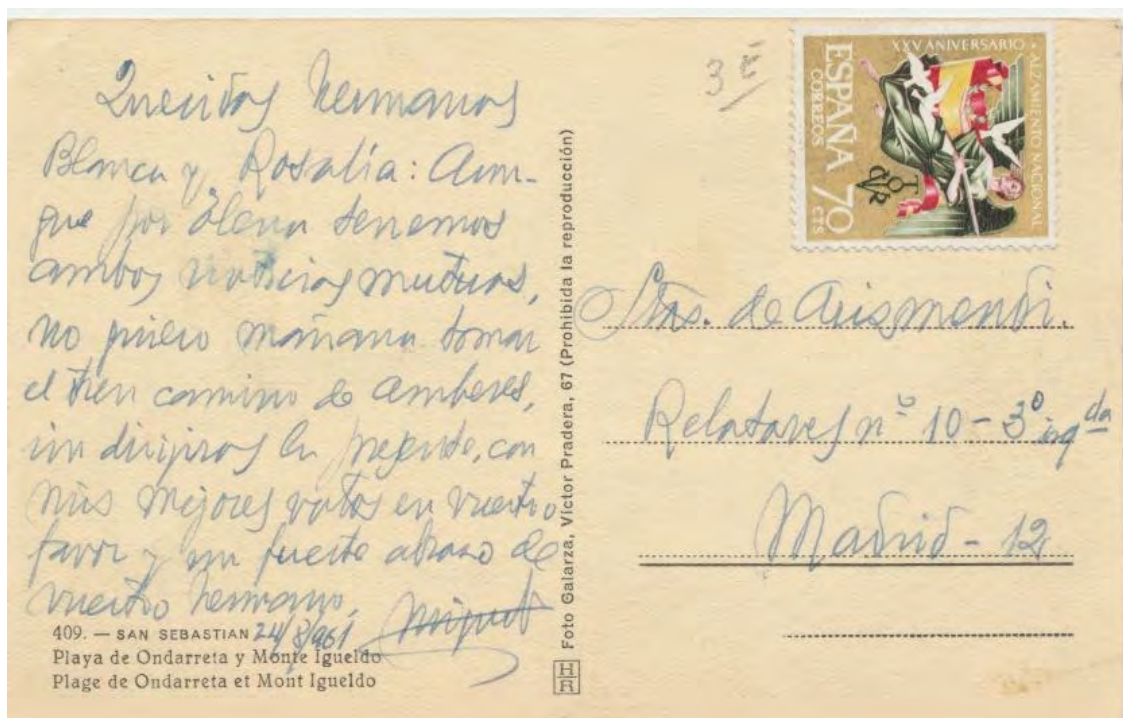 Queridos hermanos
Blanca y Rosalía: Aun-
que por Elena tenemos
ambos noticias mutuas,
no quiero mañana tomar
el tren camino de Amberes,
sin dirigiros la presente, con
mis mejores votos en vuestro
favor y un fuerte abrazo de
vuestro hermano,
Miguel
24/8/961
409. — SAN SEBASTIAN
Playa de Ondarreta y Monte Igueldo
Plage de Ondarreta et Mont Igueldo
Foto Galarza, Víctor Pradera, 67 (Prohibida la reproducción)
HR
3 €
XXV ANIVERSARIO • ALZAMIENTO NACIONAL
ESPAÑA 70 CTS
CORREOS
Stas. de Arismendi.
Relatores nº 10 - 3º izqda
Madrid - 12